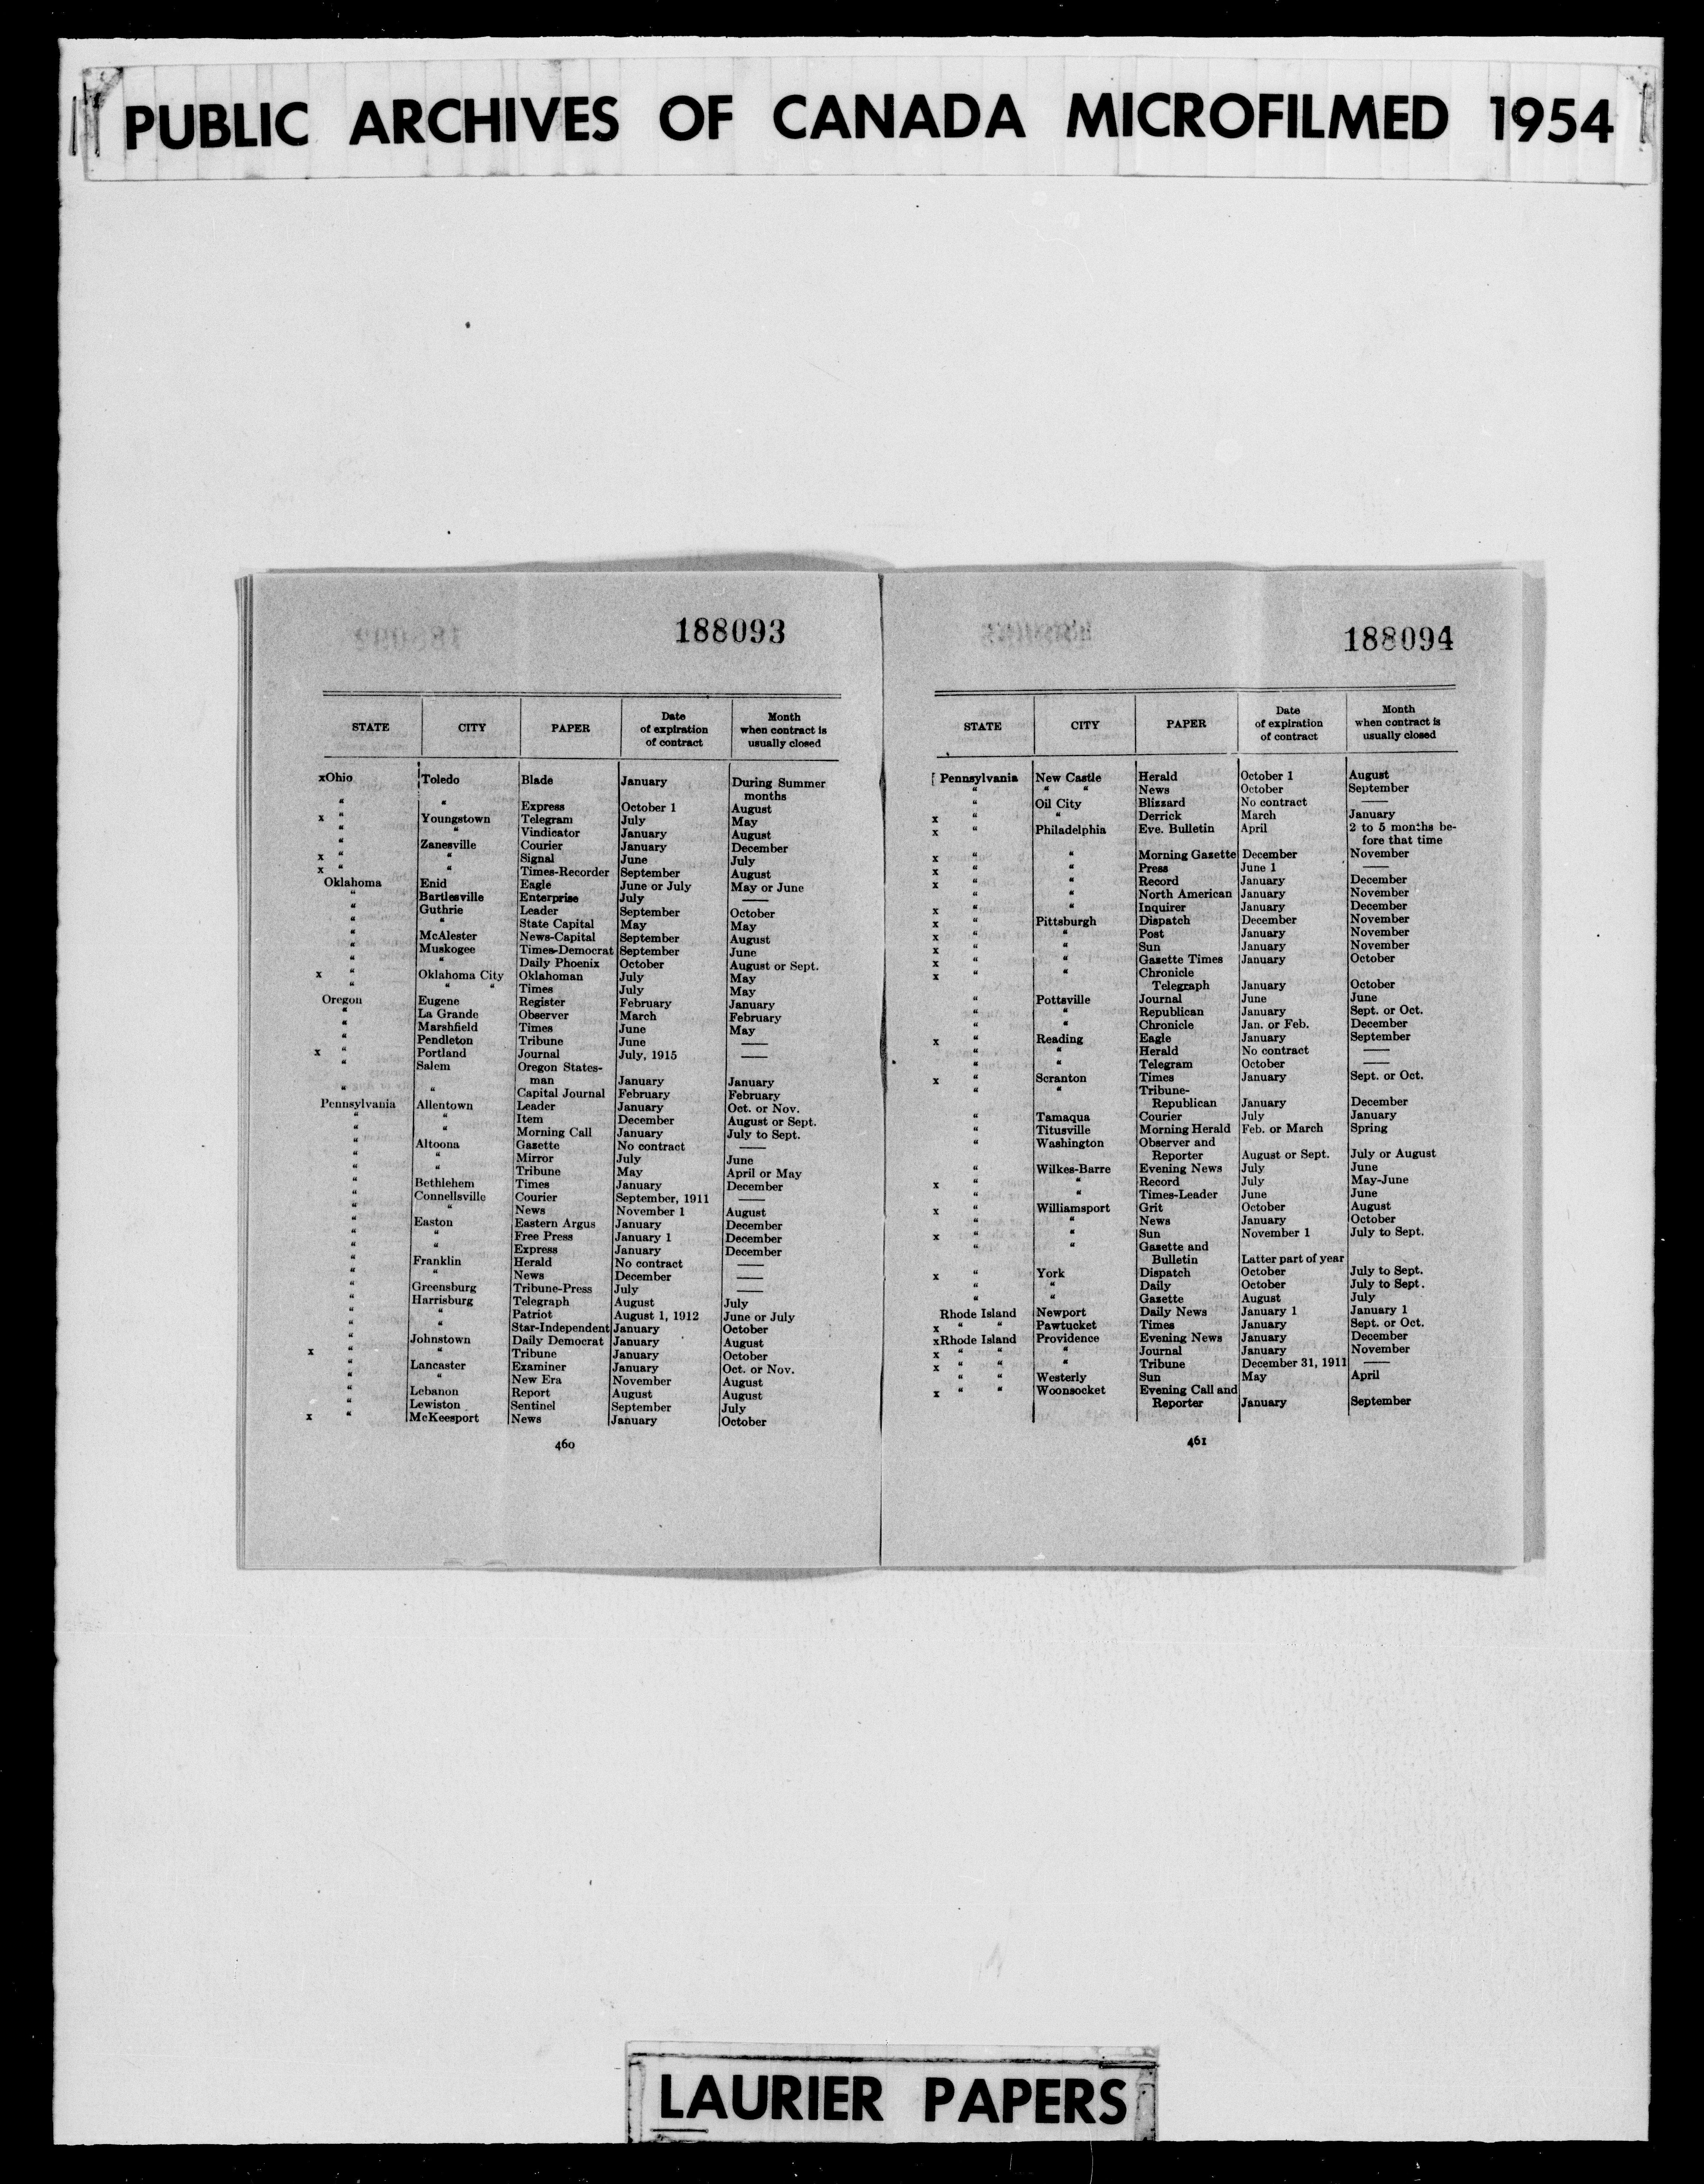 PUBLIC ARCHIVES OF CANADA MICROFILMED 1954
188093
STATE CITY PAPER Date of expiration of contract Month when contract is usually closed
xOhio Toledo Blade January During Summer
months
" " Express October 1 August
x " Youngstown Telegram July May
" " Vindicator January August
" Zanesville Courier January December
x " " Signal June July
x " " Times-Recorder September August
Oklahoma Enid Eagle June or July May or June
" Bartlesville Enterprise July —
" Guthrie Leader September October
" " State Capital May May
" McAlester News-Capital September August
" Muskogee Times-Democrat September June
" " Daily Phoenix October August or Sept.
x " Oklahoma City Oklahoman July May
" " " Times July May
Oregon Eugene Register February January
" La Grande Observer March February
" Marshfield Times June May
" Pendleton Tribune June —
x " Portland Journal July, 1915 —
" Salem Oregon States-
man January January
" " Capital Journal February February
Pennsylvania Allentown Leader January Oct. or Nov.
" " Item December August or Sept.
" " Morning Call January July to Sept.
" Altoona Gazette No contract —
" " Mirror July June
" " Tribune May April or May
" Bethlehem Times January December
" Connellsville Courier September, 1911 —
" " News November 1 August
" Easton Eastern Argus January December
" " Free Press January 1 December
" " Express January December
" Franklin Herald No contract —
" " News December —
" Greensburg Tribune-Press July —
" Harrisburg Telegraph August July
" " Patriot August 1, 1912 June or July
" " Star-Independent January October
" Johnstown Daily Democrat January August
x " " Tribune January October
" Lancaster Examiner January Oct. or Nov.
" " New Era November August
" Lebanon Report August August
" Lewiston Sentinel September July
x " McKeesport News January October
460
188094
STATE CITY PAPER Date of expiration of contract Month when contract is usually closed
[ Pennsylvania New Castle Herald October 1 August
" " " News October September
" Oil City Blizzard No contract —
x " " Derrick March January
x " Philadelphia Eve. Bulletin April 2 to 5 months be-
fore that time
x " " Morning Gazette December November
x " " Press June 1 —
x " " Record January December
" " North American January November
x " " Inquirer January December
x " Pittsburgh Dispatch December November
x " " Post January November
x " " Sun January November
x " " Gazette Times January October
x " " Chronicle
Telegraph January October
" Pottsville Journal June June
" " Republican January Sept. or Oct.
" " Chronicle Jan. or Feb. December
x " Reading Eagle January September
" " Herald No contract —
" " Telegram October —
x " Scranton Times January Sept. or Oct.
" " Tribune-
Republican January December
" Tamaqua Courier July January
" Titusville Morning Herald Feb. or March Spring
" Washington Observer and
Reporter August or Sept. July or August
" Wilkes-Barre Evening News July June
x " " Record July May-June
" " Times-Leader June June
x " Williamsport Grit October August
" " News January October
x " " Sun November 1 July to Sept.
" " Gazette and
Bulletin Latter part of year
x " York Dispatch October July to Sept.
" " Daily October July to Sept.
" " Gazette August July
Rhode Island Newport Daily News January 1 January 1
x " " Pawtucket Times January Sept. or Oct.
xRhode Island Providence Evening News January December
x " " " Journal January November
x " " " Tribune December 31, 1911 —
" " Westerly Sun May April
x " " Woonsocket Evening Call and
Reporter January September
461
LAURIER PAPERS